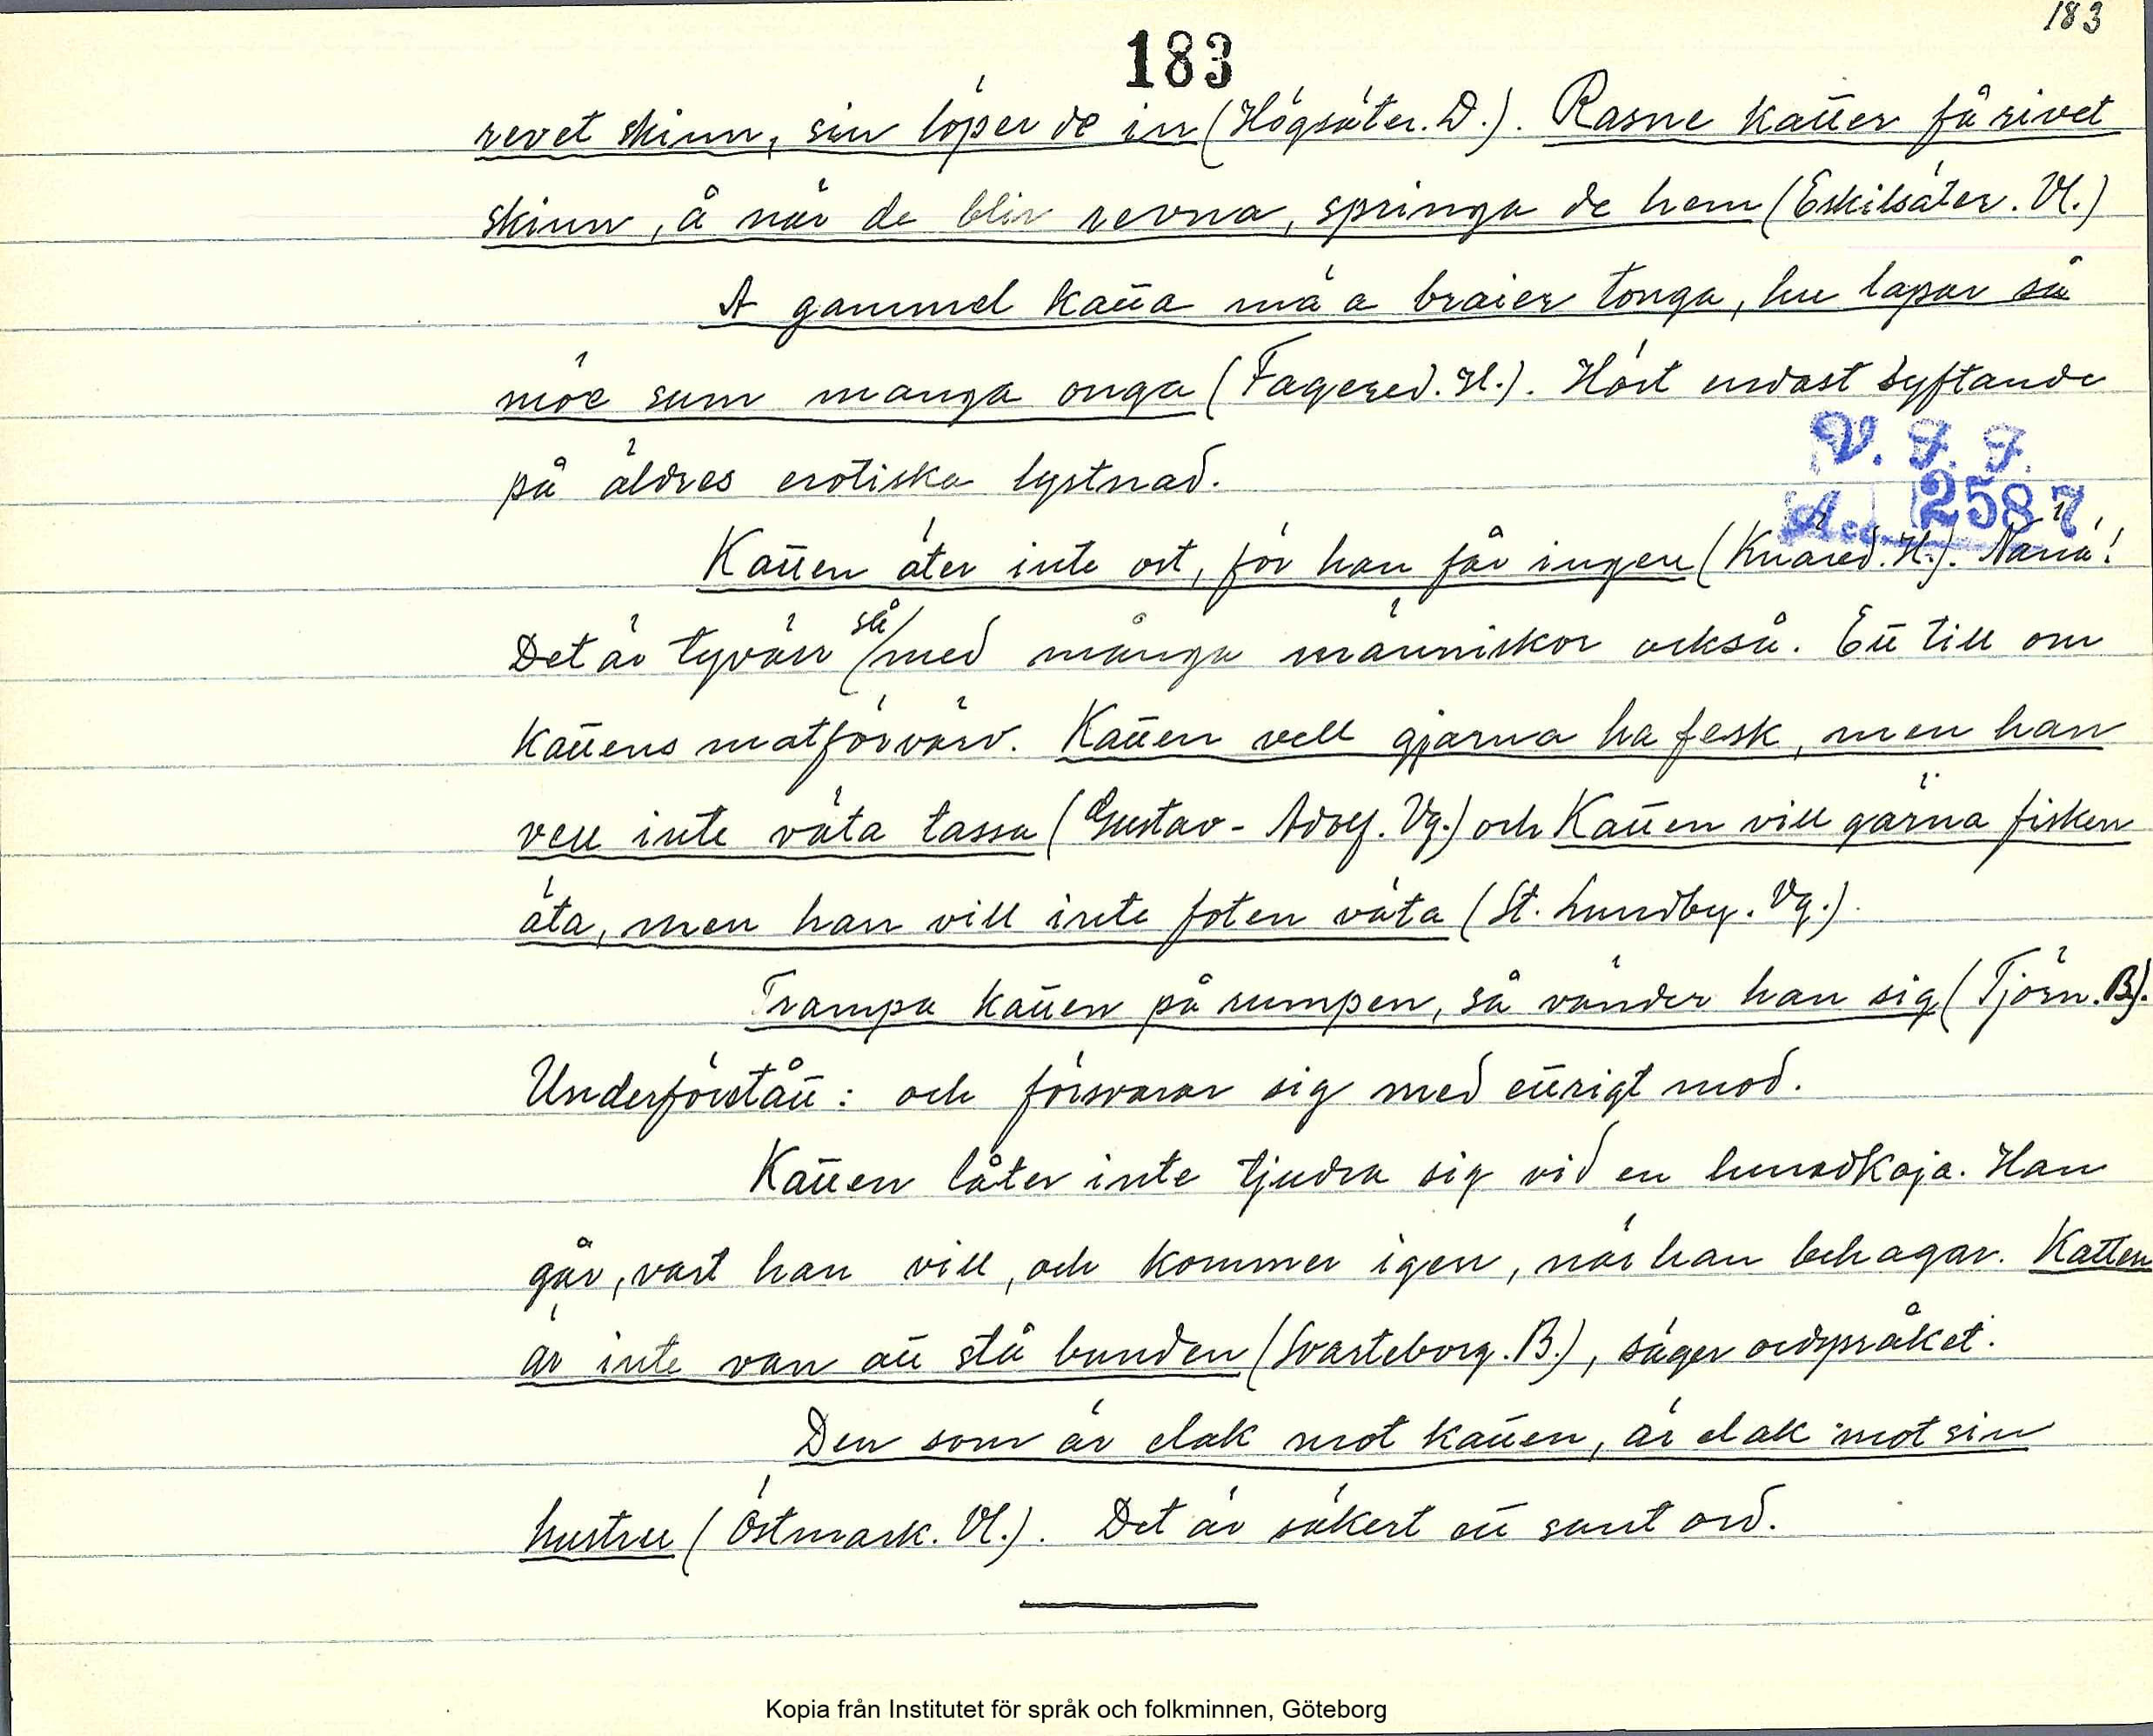 183
183
revet skinn, sin löper de in (Högsäter. D.). Rasne katter få rivet
skinn, å när de blir revna, springa de hem (Eskilsäter. Vl.)
A gammel katta mä a braier tonga, hu lapar så
möe sum manga onga (Fagered. H.). Hört endast syftande
på äldres erotiska lystnad.
V. F. F.
Acc. 2587
Katten äter inte ost, för han får ingen (Knäred. H.). Nänä!
Det är tyvärr så med många människor också. Ett till om
kattens matförvärv. Katten vell gjärna ha fesk, men han
vell inte väta tassa (Gustav-Adolf. Vg.) och Katten vill gärna fisken
äta, men han vill inte foten väta (St. Lundby. Vg.).
Trampa katten på rumpen, så vänder han sig (Tjörn. B).
Underförstått: och försvarar sig med ettrigt mod.
Katten låter inte tjudra sig vid en hundkoja. Han
går, vart han vill, och kommer igen, när han behagar. Katten
är inte van att stå bunden (Svarteborg. B.), säger ordspråket.
Den som är elak mot katten, är elak mot sin
hustru (Östmark. Vl.). Det är säkert ett sant ord.
Kopia från Institutet för språk och folkminnen, Göteborg